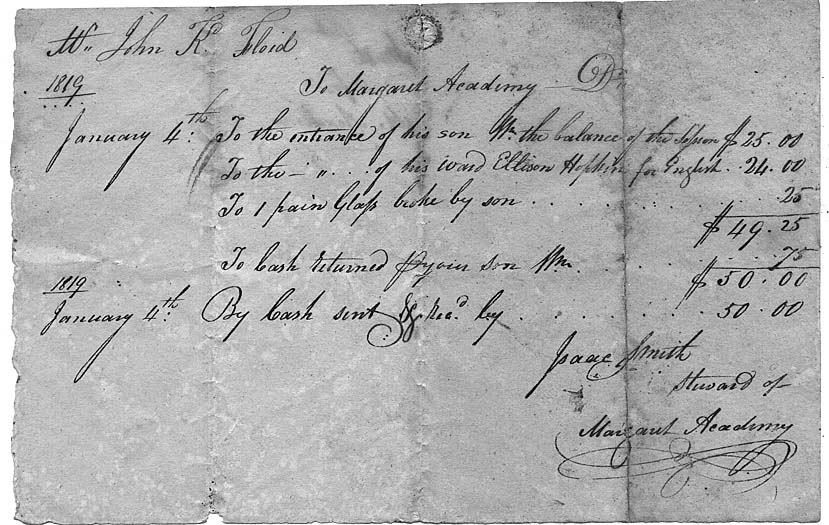 Mr John K.d Floid
1819 To Margaret Academy Dr
January 4th: To the entrance of his son Wm the balance of the Session $25.00
To the — " . . . of his ward Ellison Hopkins for English . . 24.00
To 1 pain Glass broke by son . . . . . . . . . 25
$49.25
To Cash returned pr your son Wm . . . . . 75
$50.00
1819
January 4th: By Cash sent & Rec.d by . . . . . . . . 50.00
Isaac Smith
Steward of
Margaret Academy